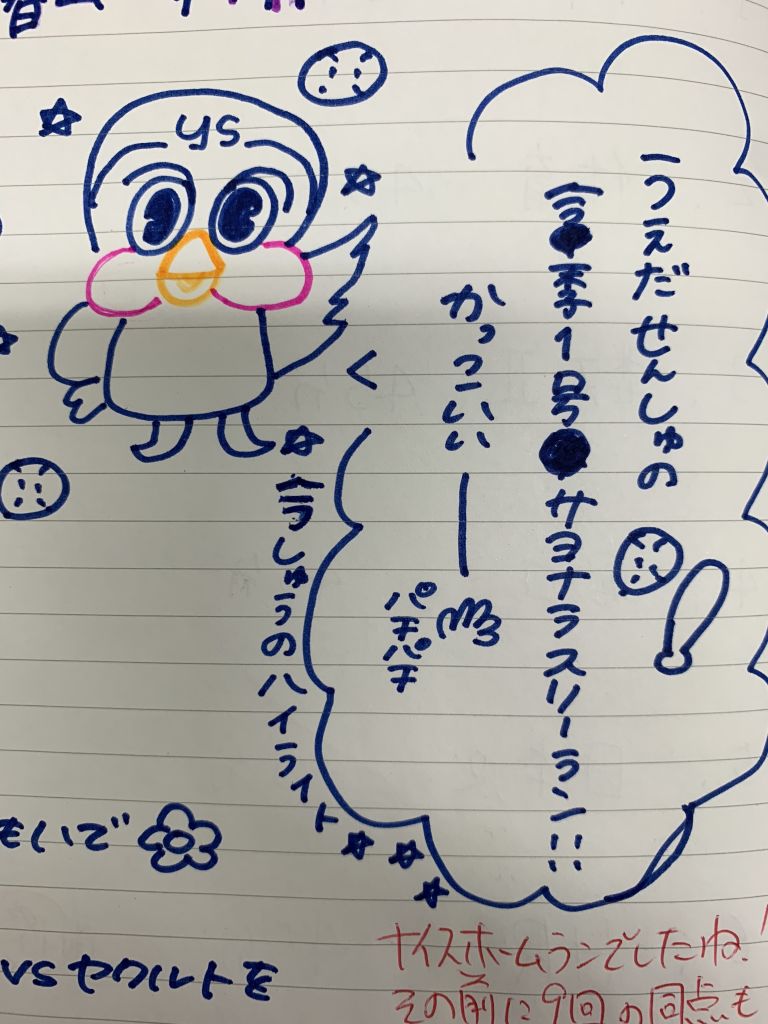 ys
うえだせんしゅの
今季1号サヨナラスリーラン!!
かっこいいー
パチパチ
今しゅうのハイライト
もいで
vsヤクルトを
ナイスホームランでしたね!
その前に9回の同点も